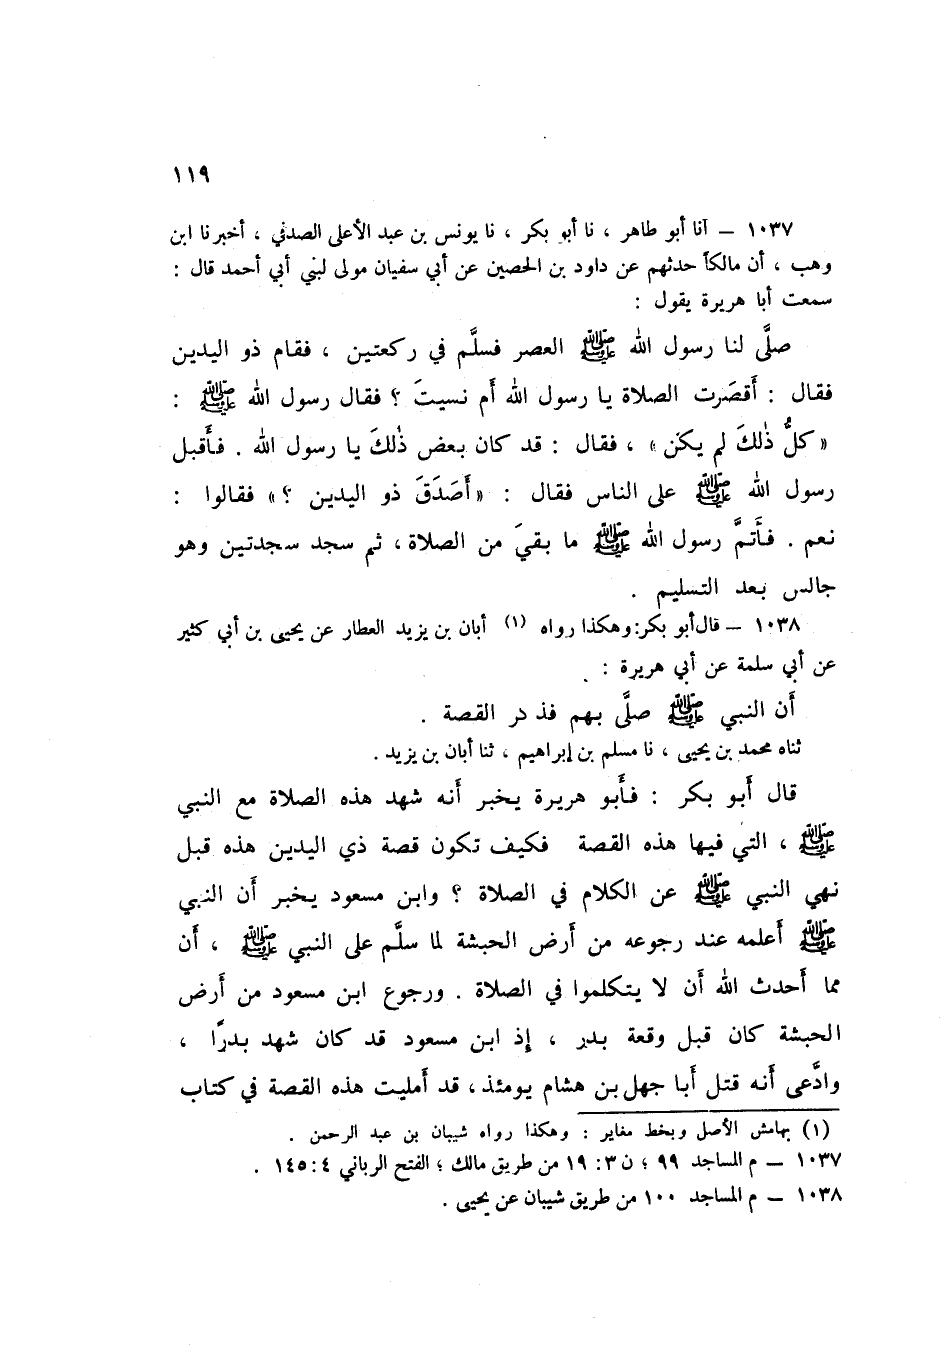 ١١٩
١٠٣٧ – آنا أبو طاهر ، نا أبو بكر ، نا يونس بن عبد الأعلى الصدفي ، أخبرنا ابن
وهب ، أن مالكاً حدثهم عن داود بن الحصين عن أبي سفيان مولى لبني أبي أحمد قال :
سمعت أبا هريرة يقول :
صلَّى لنا رسول الله ﷺ العصر فسلَّم في ركعتين ، فقام ذو اليدين
فقال : أَقصَرت الصلاة يا رسول الله أم نسيتَ ؟ فقال رسول الله ﷺ :
« كلُّ ذٰلكَ لم يكن » ، فقال : قد كان بعض ذٰلكَ يا رسول الله . فأَقبل
رسول الله ﷺ على الناس فقال : « أَصَدَقَ ذو اليدين ؟ » فقالوا :
نعم . فأَتمَّ رسول الله ﷺ ما بقيَ من الصلاة ، ثم سجد سجدتين وهو
جالس بعد التسليم .
١٠٣٨ – قال أبو بكر : وهكذا رواه (١) أبان بن يزيد العطار عن يحيى بن أبي كثير
عن أبي سلمة عن أبي هريرة :
أَن النبي ﷺ صلَّى بهم فذكر القصة .
ثناه محمد بن يحيى ، نا مسلم بن إبراهيم ، ثنا أبان بن يزيد .
قال أَبو بكر : فأَبو هريرة يخبر أَنه شهد هذه الصلاة مع النبي
ﷺ ، التي فيها هذه القصة فكيف تكون قصة ذي اليدين هذه قبل
نهي النبي ﷺ عن الكلام في الصلاة ؟ وابن مسعود يخبر أَن النبي
ﷺ أَعلمه عند رجوعه من أَرض الحبشة لما سلَّم على النبي ﷺ ، أَن
مما أَحدث الله أَن لا يتكلموا في الصلاة . ورجوع ابن مسعود من أَرض
الحبشة كان قبل وقعة بدر ، إِذ ابن مسعود قد كان شهد بدرًا ،
وادَّعى أَنه قتل أَبا جهل بن هشام يومئذ ، قد أَمليت هذه القصة في كتاب
(١) بهامش الأصل وبخط مغاير : وهكذا رواه شيبان بن عبد الرحمن .
١٠٣٧ – م المساجد ٩٩ ؛ ن ٣ : ١٩ من طريق مالك ؛ الفتح الرباني ٤ : ١٤٥ .
١٠٣٨ – م المساجد ١٠٠ من طريق شيبان عن يحيى .